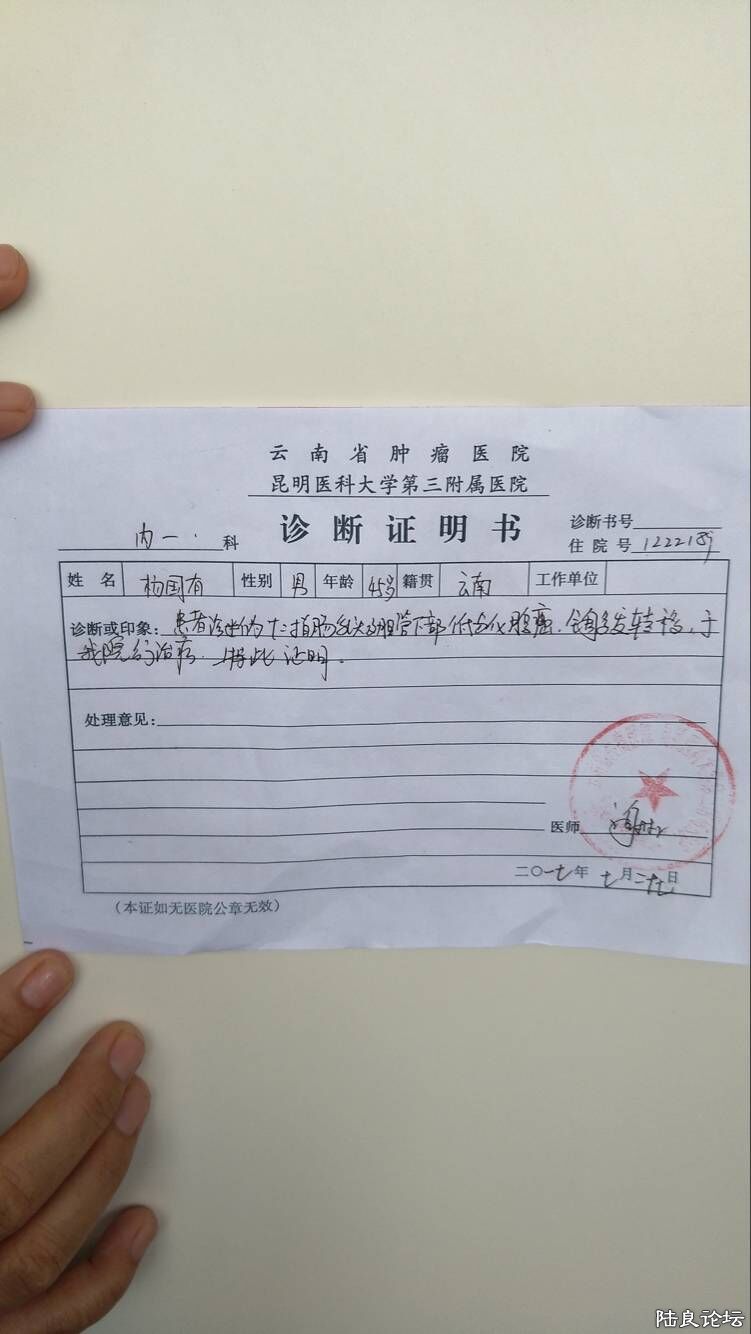 云南省肿瘤医院
昆明医科大学第三附属医院
诊断证明书
内一 科
诊断书号
住院号 1222189
姓名 杨国有 性别 男 年龄 45岁 籍贯 云南 工作单位
诊断或印象: 患者诊断为十二指肠乳头及胆管下部低分化腺癌. 多发转移, 于
我院行治疗. 特此证明.
处理意见:
医师
二〇一七年 七月二十七日
(本证如无医院公章无效)
陆良论坛